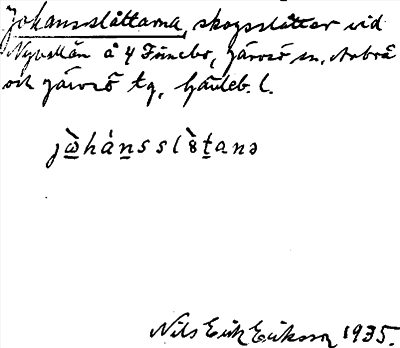 Johansslåttarna, skogsslåtter vid
Nyvallen å 4 Fönebo, Järvsö sn, Arbrå
och Järvsö tg, Gävleb. l.
jὼ̠hán̠sslȣ̀t̠anə
Nils Erik Eriksson 1935.